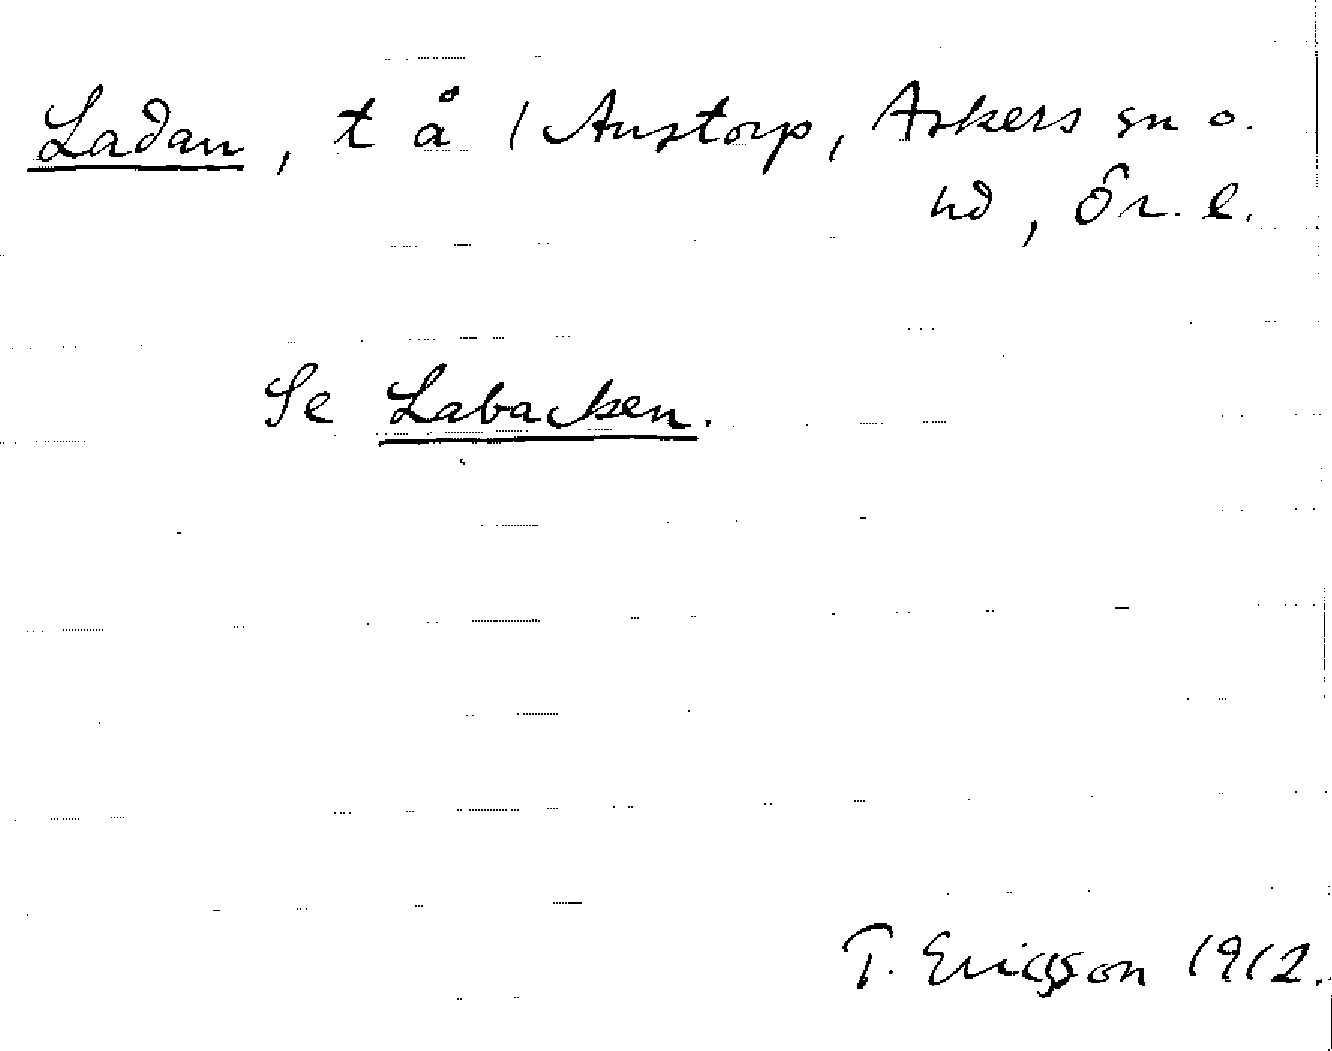 Ladan, t å / Austorp, Askers sn o.
hd, Ör. l.
Se Labacken.
T. Ericsson 1912.